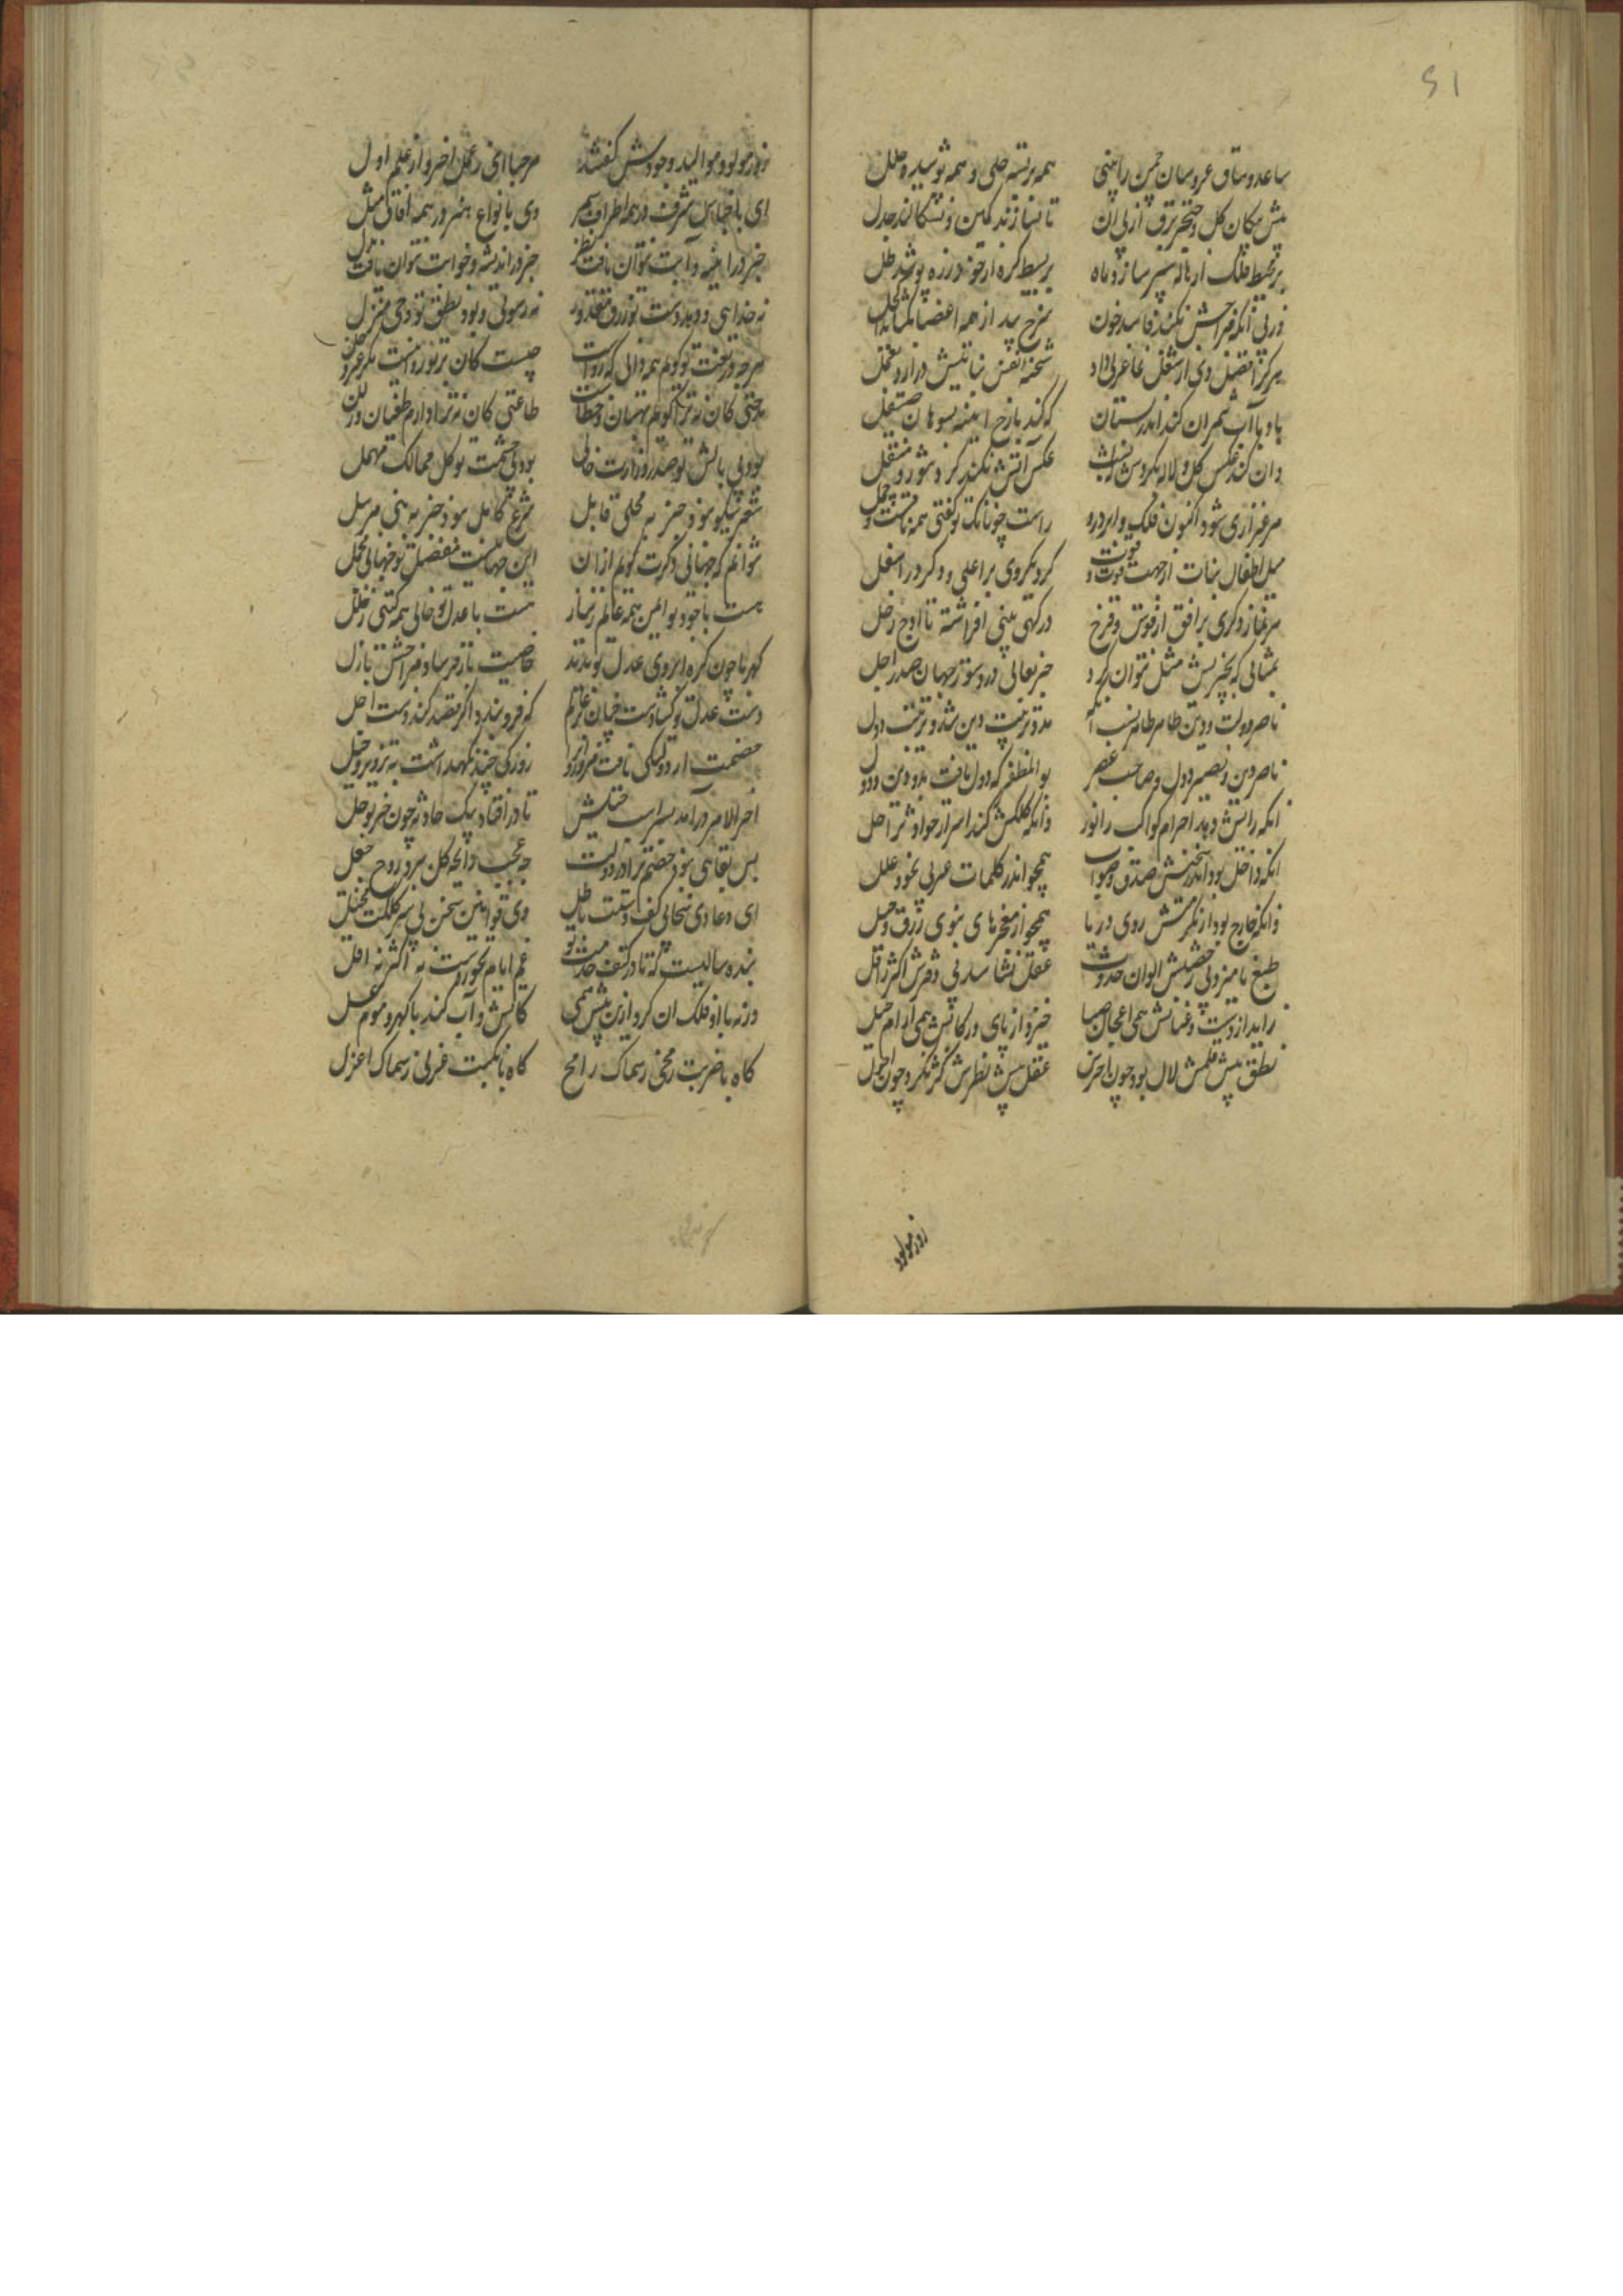 ۵۱
ساعد و ساق عروسان چمن را بینی همه بر بسته حلی و همه پوشیده حلل
پیش پیکان گل و خنجر برق از پی آن تا نسازند کمین و نسکالند جدل
بر محیط فلک از هاله سپر سازد ماه بر بسیط کره از خوید زره پوشد طل
وز پی آنکه مزاجش نکند فاسد خون سرخ بید از همه اعضا بگشاید اکحل
هر کرا فصل دی از شغل نما عزلی داد شحنه نفس نباتیش درآرد بعمل
باد با آب شمر آن کند اندر بستان که کند با رخ آیینه بسوهان صیقل
وان کند عکس گل و لاله بگردش بشب عکس آتش نکند گرد شور و منقل
مرغزاری شود اکنون فلک و ابر درو راست چونانک تو گفتی همه
میل اطفال نبات از جهت قوت و قوت کرد یکروی بر اعلی و دگر در اسفل
درگهی بینی افراشته تا اوج زحل
بمثالی که بچیزیش مثل نتوان کرد جز بعالی در دستور جهان صدر اجل
ناصر دولت و دین طاهر طاهر نسب آنکه مدد تربیت دین شد و ترتیب دول
ناصر دین و نصیر دول و صاحب عصر بوالمظفر که دول یافت بدو دین و دول
آنکه رایش دهد اجرام کواکب را نور وانکه کلکش کند اسرار حوادث را حل
آنکه داخل بود اندر سخنش صدق و صواب همچو اندر کلمات عربی نحو و علل
وانکه خارج بود از مکرمتش روی و ریا همچو از معجزهای نبوی زرق و حیل
طبع نامیزد بی حضرتش الوان حدوث عقل نشناسد بی دفترش اکثر ز اقل
زاید از دست و عنانش همی اعجاز صبا خیزد از پای و رکابش همی آرام جبل
نطق پیش قلمش لال بود چون اخرس عقل پیش نظرش کژ نگرد چون احول
روز مولود
روز مولود موالید وجودش گفتند مرحبا ای ز عمل آخر و از علم اول
ای باجناس شرف در همه اطراف سمر وی بانواع هنر در همه آفاق مثل
جز در آیینه و آبت نتوان یافت نظیر جز در اندیشه و خوابت نتوان یافت بدل
نه خدایی و دهد دست تو رزق مقدور نه رسولی و بود نطق تو وحی منزل
هر چه در نعت تو گویم همه زانی که رواست چیست کان بر تو روا نیست مگر عز و جل
مدحتی کان نه ترا گویم بهتان و خطاست طاعتی کان نه ترا دارم طغیان و زلل
بود بی بالش تو صدر وزارت خالی بود بی حشمت تو کل ممالک مهمل
شعر نیکو نبود جز به محلی قابل شرع کامل نبود جز به نبی مرسل
نتوانم که جهانی دگرت گویم از آن این جهانیست مفصل تو جهانی مجمل
هست با جود تو ایمن همه عالم ز نیاز هست با عدل تو خالی همه گیتی ز خلل
کهربا چون گره ابروی عدل تو بدید خاصیت باز فرستاد مزاجش بازل
دست عدل تو گشادست چنان بر عالم که فرو بندد اگر قصد کند دست اجل
خصمت ار دولتکی یافت مزور روزکی چند نگهداشت به تزویر و حیل
آخر الامر درآمد بسر اسب حیلش تا در افتاد بیک حادثه چون خر بوحل
بس بقایی نبود خصم ترا در دولت چه عجب رایحه گل ببرد روح جعل
ای دعاوی سخا بی کف دستت باطل وی قوانین سخن بی سر کلکت مختل
بنده سالیست که تا در کنف خدمت تو غم ایام نخوردست نه اکثر نه اقل
ورنه با او فلک آن کرد ازین پیش همی کآتش و آب کند با گهر و موم و عسل
گاه با ضربت رمحی ز سماک رامح گاه با نکبت عزلی ز سماک اعزل